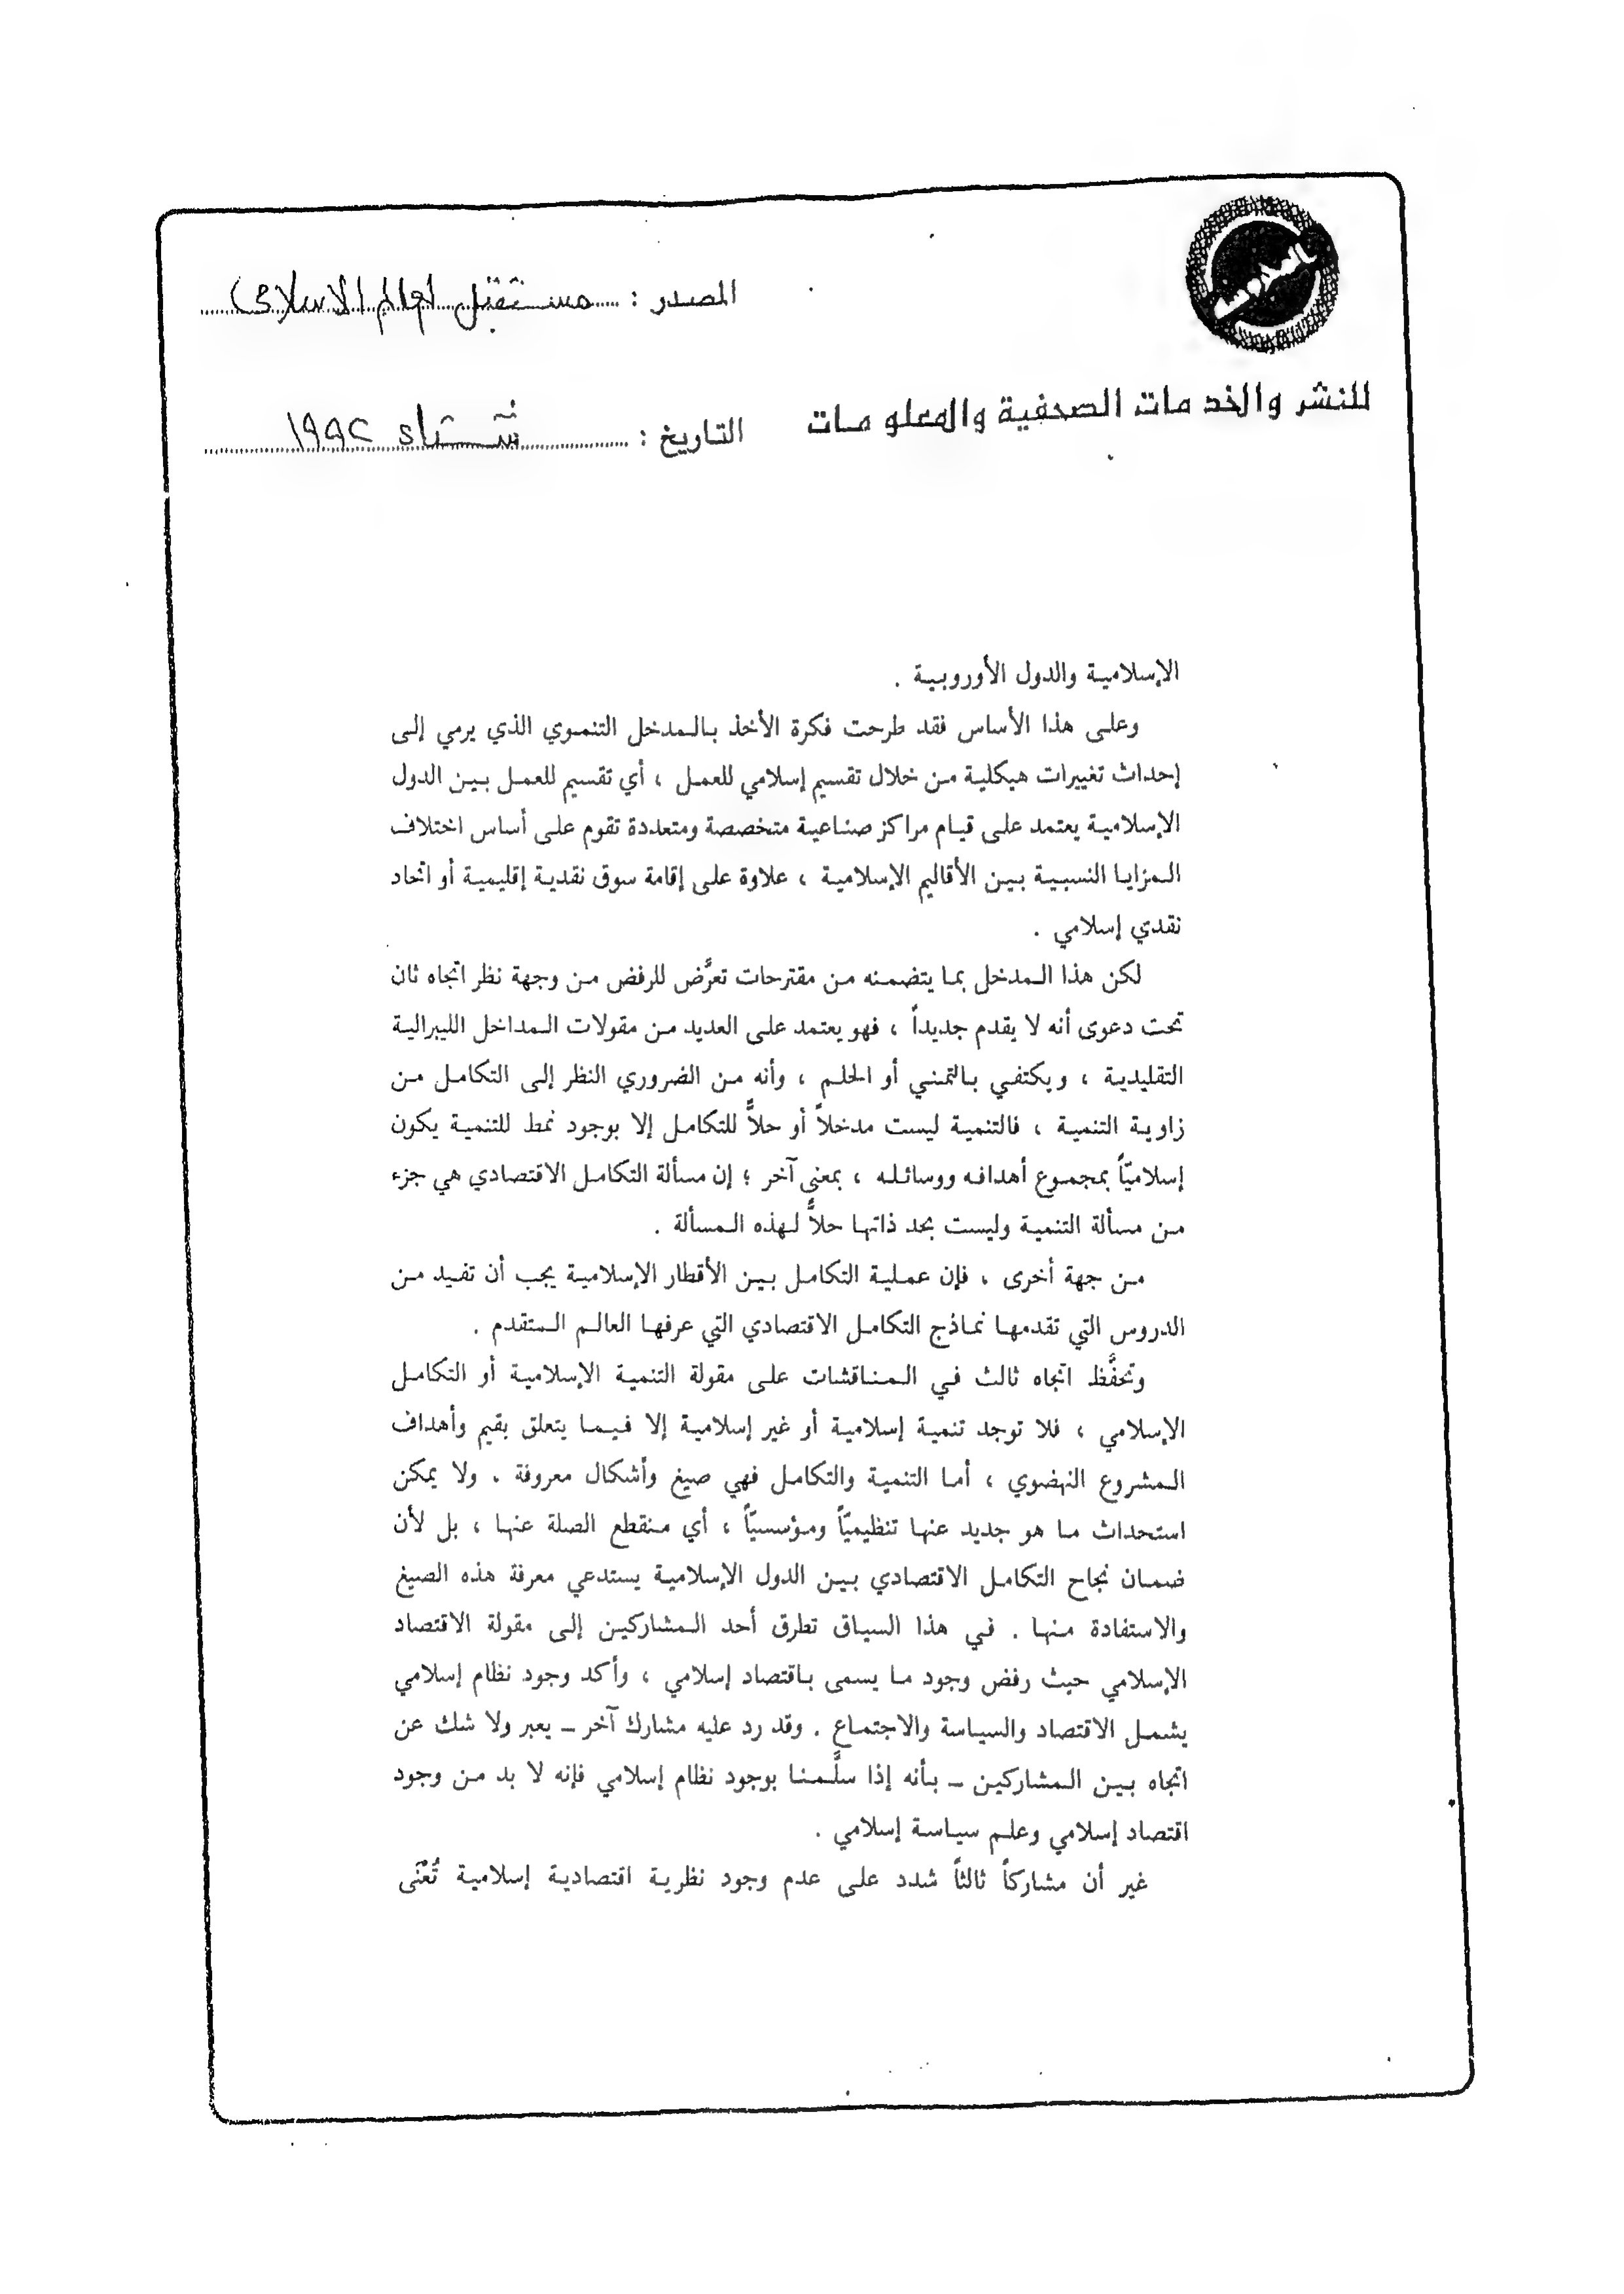 المصدر : مستقبل العالم الاسلامى
للنشر والخدمات الصحفية والمعلومات
التاريخ : شتاء ١٩٩٢
الإسلامية والدول الأوروبية .
وعلى هذا الأساس فقد طرحت فكرة الأخذ بالمدخل التنموي الذي يرمي إلى
إحداث تغييرات هيكلية من خلال تقسيم إسلامي للعمل ، أي تقسيم للعمل بين الدول
الإسلامية يعتمد على قيام مراكز صناعية متخصصة ومتعددة تقوم على أساس اختلاف
المزايا النسبية بين الأقاليم الإسلامية ، علاوة على إقامة سوق نقدية إقليمية أو اتحاد
نقدي إسلامي .
لكن هذا المدخل بما يتضمنه من مقترحات تعرَّض للرفض من وجهة نظر اتجاه ثان
تحت دعوى أنه لا يقدم جديداً ، فهو يعتمد على العديد من مقولات المداخل الليبرالية
التقليدية ، ويكتفي بالتمني أو الحلم ، وأنه من الضروري النظر إلى التكامل من
زاوية التنمية ، فالتنمية ليست مدخلاً أو حلاًّ للتكامل إلا بوجود نمط للتنمية يكون
إسلاميّاً بمجموع أهدافه ووسائله ، بمعنى آخر ؛ إن مسألة التكامل الاقتصادي هي جزء
من مسألة التنمية وليست بحد ذاتها حلاًّ لهذه المسألة .
من جهة أخرى ، فإن عملية التكامل بين الأقطار الإسلامية يجب أن تفيد من
الدروس التي تقدمها نماذج التكامل الاقتصادي التي عرفها العالم المتقدم .
وتحفَّظ اتجاه ثالث في المناقشات على مقولة التنمية الإسلامية أو التكامل
الإسلامي ، فلا توجد تنمية إسلامية أو غير إسلامية إلا فيما يتعلق بقيم وأهداف
المشروع النهضوي ، أما التنمية والتكامل فهي صيغ وأشكال معروفة . ولا يمكن
استحداث ما هو جديد عنها تنظيميّاً ومؤسسيّاً ، أي منقطع الصلة عنها ، بل لأن
ضمان نجاح التكامل الاقتصادي بين الدول الإسلامية يستدعي معرفة هذه الصيغ
والاستفادة منها . في هذا السياق تطرق أحد المشاركين إلى مقولة الاقتصاد
الإسلامي حيث رفض وجود ما يسمى باقتصاد إسلامي ، وأكد وجود نظام إسلامي
يشمل الاقتصاد والسياسة والاجتماع . وقد رد عليه مشارك آخر – يعبر ولا شك عن
اتجاه بين المشاركين – بأنه إذا سلَّمنا بوجود نظام إسلامي فإنه لا بد من وجود
اقتصاد إسلامي وعلم سياسة إسلامي .
غير أن مشاركاً ثالثاً شدد على عدم وجود نظرية اقتصادية إسلامية تُعْنَى